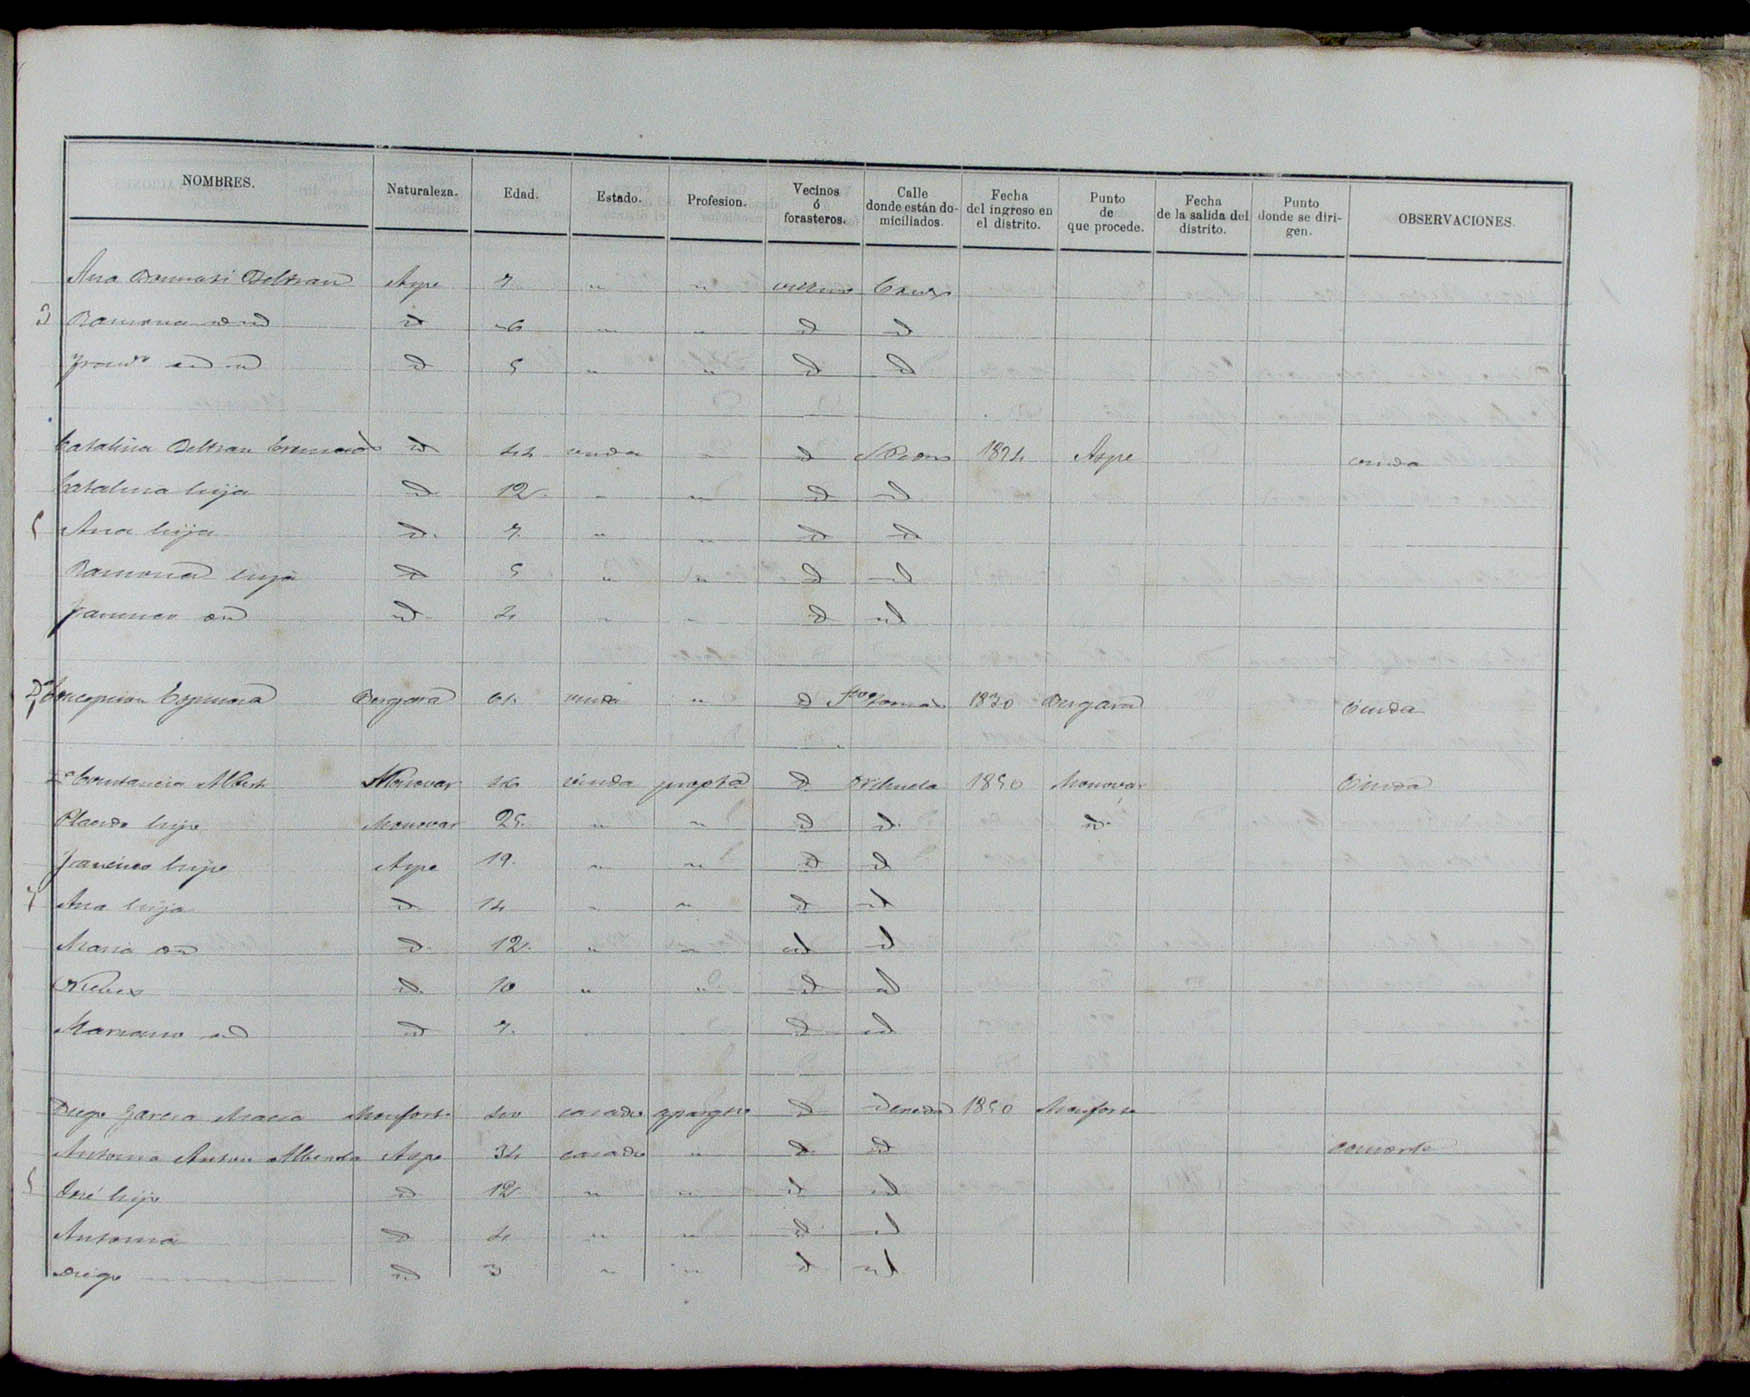 NOMBRES. Naturaleza. Edad. Estado. Profesion. Vecinos ó forasteros. Calle donde están domiciliados. Fecha del ingreso en el distrito. Punto de que procede. Fecha de la salida del distrito. Punto donde se dirigen. OBSERVACIONES.
Ana Beltran Aspe 7 " " vecino Cruz
3 Ramona id id id 6 " " id id
id id id 5 " " id id
Catalina Beltran id 44 viuda " id 1874 Aspe viuda
Catalina hija id 12 " " id id
5 Ana hija id 7 " " id id
Ramona hija id 5 " " id id
Francisco id id 4 " " id id
Concepcion Espinosa 61 viuda " id 1830 Viuda
Constancia Albert Monovar 46 viuda propta id Orihuela 1850 Monovar Viuda
Placido hijo Monovar 25 " " id id id
Francisco hijo Aspe 19 " " id id
7 Ana hija id 14 " " id id
Maria id id 12 " " id id
Nieves id 10 " " id id
Mariano id id 7 id id
Diego Garcia Macia Monforte 40 casado id 1850 Monforte
Antonia Anton Aspe 34 casada " id id consorte
5 José hijo id 12 " " id id
Antonia id 4 " " id id
Diego id 3 " " id id